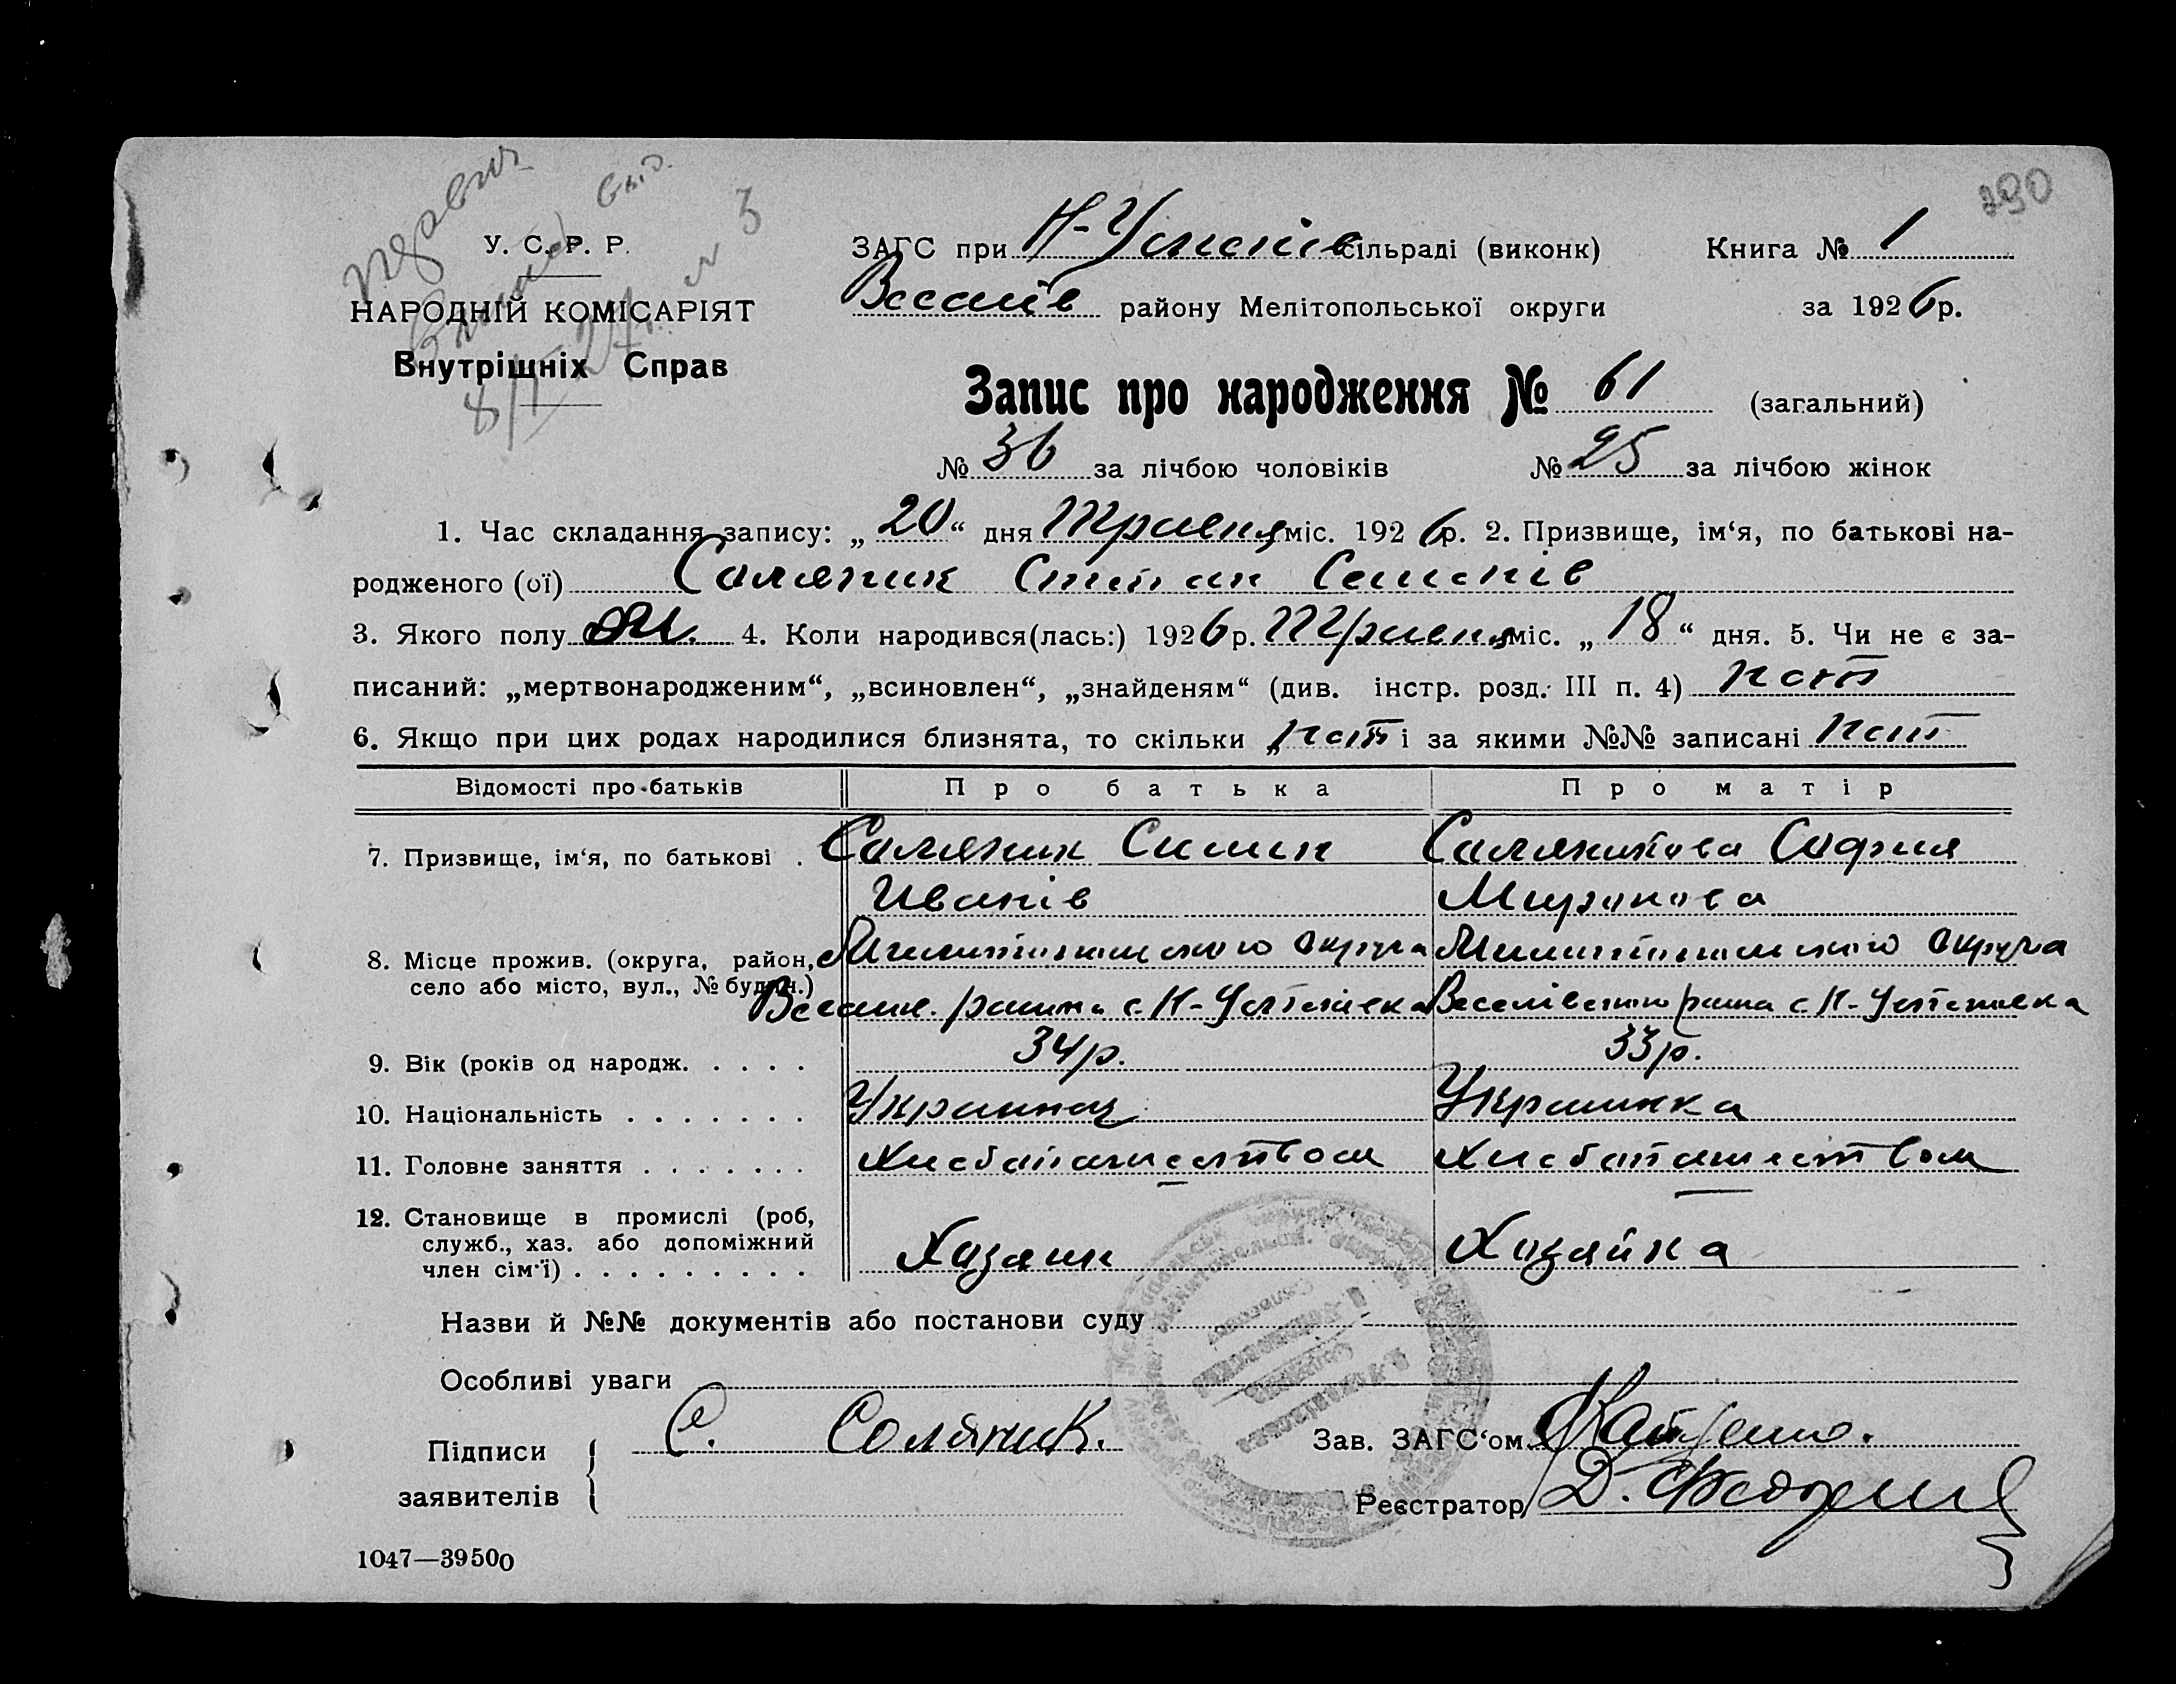 290
У. С. Р. Р.
НАРОДНІЙ КОМІСАРІЯТ
Внутрішніх Справ
ЗАГС при Н-Успенів сільраді (виконк) Книга № 1
Весел їв району Мелітопольської округи за 1926 р.
Запис про народження № 61 (загальний)
№ 36 за лічбою чоловіків № 25 за лічбою жінок
1. Час складання запису: „ 20 “ дня Травня міс. 1926 р. 2. Призвище, ім‘я, по батькові на-
родженого (ої) Саляник Степан Семенів
3. Якого полу М. 4. Коли народився(лась:) 1926 р. Травня міс. „ 18 “ дня. 5. Чи не є за-
писаний: „мертвонародженим“, „всиновлен“, „знайденям“ (див. інстр. розд. III п. 4) нет
6. Якщо при цих родах народилися близнята, то скільки „ нет і за якими №№ записані нет
Відомості про батьків Про батька Про матір
7. Призвище, ім‘я, по батькові . Саляник Симен Саляникова София
Иванів Миронова
8. Місце прожив. (округа, район, округа округа
село або місто, вул., № будин.) Весели. района с. Н-Успенівка района с Н-Успенивка
9. Вік (років од народж. . . . . 34 р. 33 р.
10. Національність . . . . . . . Украинец Украинка
11. Головне заняття . . . . . . . Хлебапашеством Хлебапашеством
12. Становище в промислі (роб,
служб., хаз. або допоміжний
член сім‘ї) . . . . . . . . . Хазяин Хазяйка
Назви й №№ документів або постанови суду
Особливі уваги
Підписи
заявителів С. Соляник.
Зав. ЗАГС‘ом
Реєстратор Д.
1047—39500